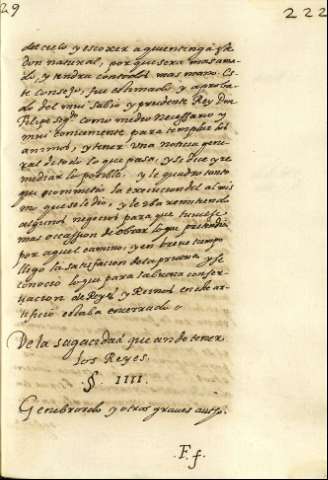 29 222
del cielo y escoxer a quien tenga este
don natural, porque sera mas ama
do, y tendra con todos mas mano. Es
te consejo, fue estimado y aproba
do del mui sabio y prudente Rey Don
Felipe Segdo como medio necessario y
mui conveniente para templar los
animos, y tener una noticia gene
ral de todo lo que passa, y se dice y re
mediar lo posible. y le quadro tanto
que cometio la execucion del al mis
mo que se le dio, y le iba remitiendo
algunos negocios para que tuviesse
mas occassion de obrar lo que pretendia
por aquel camino, y en breve tiempo
llego la satisfacion de la prueva y se
conocio lo que para la buena conser
vacion de Reyes y Reinos en este ar
tificio estaba encerrado
De la sagacidad que an de tener
los Reyes.
§. IIII.
Genebrardo y otros graves
F. f.